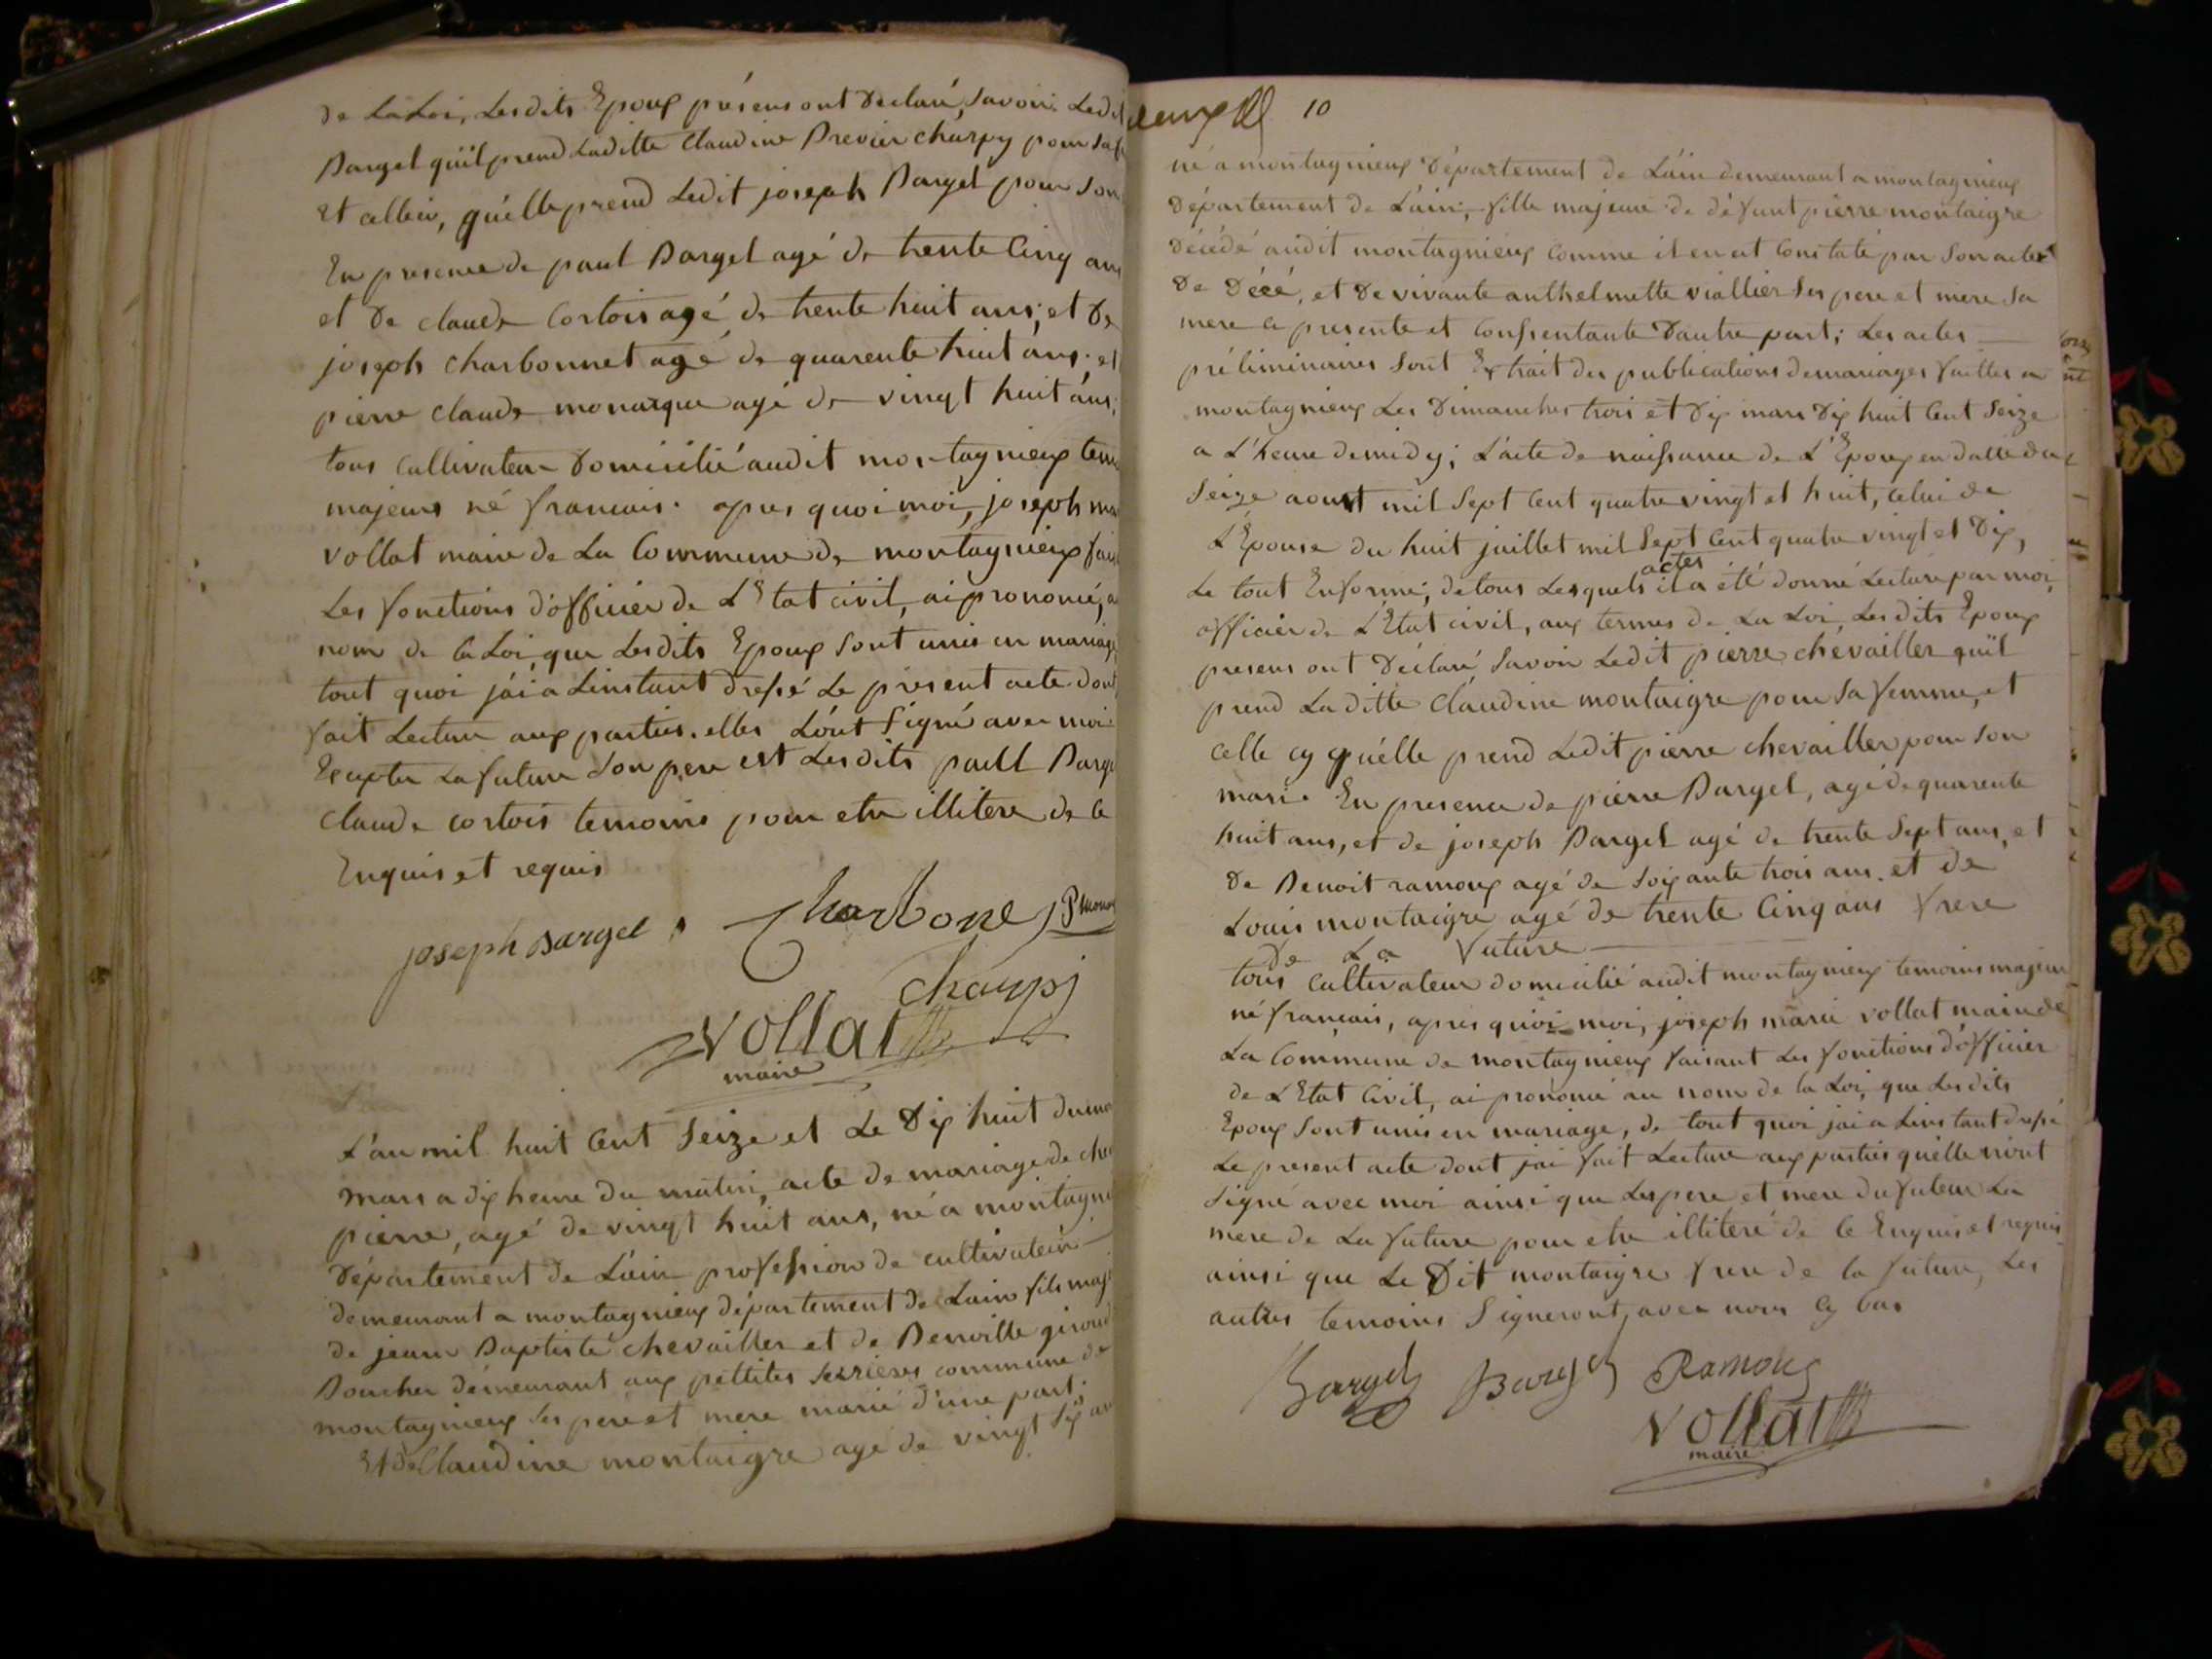 de La Loi, Les dits Epoux présens ont déclaré, Savoir Ledit
Bargel qu'il prend Laditte Claudine Brevier charpy pour Sa
et celleci, qu'elle prend Ledit joseph Bargel pour Son
En presence de paul Bargel agé de trente Cinq ans
et de claude Cortois agé de trente huit ans, et De
joseph charbonnet agé de quarente huit ans. et
pierre claude monarque agé de vingt huit ans,
tous Cultivateur Domicilié audit montagnieux tem
majeurs né francais. apres quoi moi, joseph ma
vollat maire de La Commune de montagnieux fais
Les fonctions d'officier de L'Etat civil, ai prononcé, a
nom de la Loi que Lesdits Epoux Sont unis en mariage
tout quoi j'ai a Linstant dressé Le présent acte dont
fait Lecture aux parties. elles L'ont Signé avec moi
Excepter La future Son pere et Lesdits paul Barge
claude cortois temoins pour etre illitere de ce
Enquis et requis
joseph Bargel Charbone P mona
charpy
vollat
maire
L'an mil huit Cent Seize et Le Dix huit du mo
mars a dix heure du matin, acte de mariage de che
pierre, agé de vingt huit ans, né a montagni
Département de L'ain profession de cultivateur
demeurant a montagnieux département de Lain fils maje
de jean Baptiste chevailler et de Benoitte giroud
Boucher demeurant aux pettites Serrieres commune de
montagnieux Ses pere et mere marié d'une part;
Et de Claudine montaigre agé de vingt Six an
10
né a montagnieux Département de L'ain demeurant a montagnieux
Département de L'ain, fille majeure de défunt pierre montaigre
Décédé audit montagnieux comme il en est Constaté par Son acte
De Décé, et De vivante anthelmette viallier Ses pere et mere Sa
mere ce presente et Consentante D'autre part; Les actes
préliminaires Sont Extrait des publications de mariages faittes a
montagnieux Les Dimanches trois et Dix mars Dix huit Cent Seize
a L'heure de midy; L'acte de naissance de L'Epoux en datte du
Seize aoust mil Sept Cent quatre vingt et huit, celui de
L'Epouse du huit juillet mil Sept Cent quatre vingt et Dix,
actes
Le tout En forme; de tous Lesquels il a été donné Lecture par moi,
officier de L'Etat civil, aux termes de La Loi, Les dits Epoux
presens ont Déclaré, Savoir Ledit pierre chevailler qu'il
prend La ditte Claudine montaigre pour Sa femme, et
celle cy qu'elle prend Ledit pierre chevailler pour Son
mari. En presence de pierre Bargel, agé de quarente
huit ans, et de joseph Bargel agé de trente Sept ans, et
De Benoit ramoux agé de Soixante trois ans. et de
Louis montaigre agé de trente Cinq ans frere
De La future
tous Cultivateur domicilié audit montagnieux temoins majeur
né francais, apres quoi moi, joseph marie vollat maire de
La Commune de montagnieux faisant Les fonctions d'officier
de L'Etat Civil, ai prononcé au nom de la Loi, que Lesdits
Epoux Sont unis en mariage, de tout quoi jai a Linstant dressé
Le present acte dont jai fait Lecture aux parties qu'elle n'ont
Signé avec moi ainsi que Les pere et mere du futeur La
mere de La future pour etre illiteré de ce Enquis et requis
ainsi que Le Dit montaigre frere de la future, Les
autres temoins Signeront avec nous Cy bas
Bargel Bargel Ramoux
vollat
maire